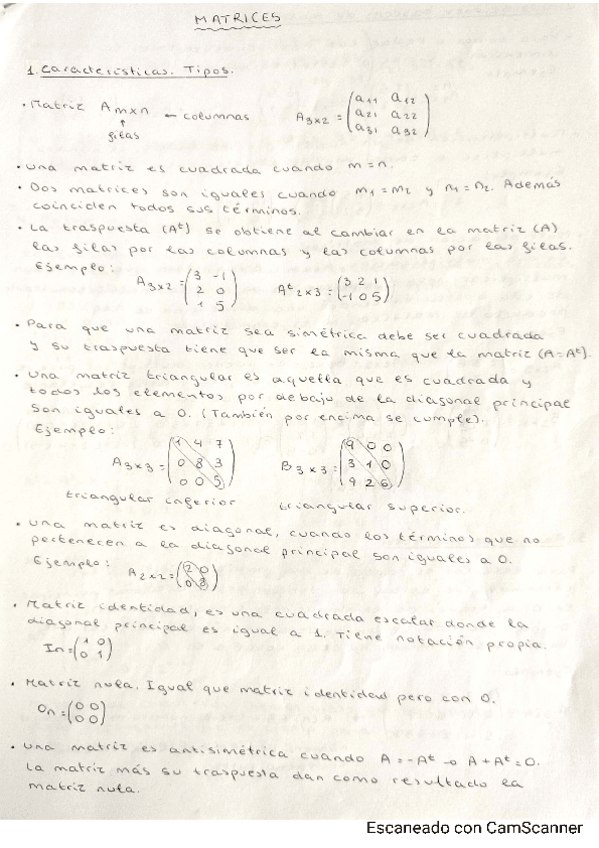 MATRICES
1. Características. Tipos.
• Matriz Amxn ← columnas
↑
filas
A3x2 = (a11 a12
a21 a22
a31 a32)
• Una matriz es cuadrada cuando m=n.
• Dos matrices son iguales cuando m1=m2 y n1=n2. Además
coinciden todos sus términos.
• La traspuesta (Aᵗ) se obtiene al cambiar en la matriz (A)
las filas por las columnas y las columnas por las filas.
Ejemplo:
A3x2 = (3 -1
2 0
1 5)
Aᵗ2x3 = (3 2 1
-1 0 5)
• Para que una matriz sea simétrica debe ser cuadrada
y su traspuesta tiene que ser la misma que la matriz (A=Aᵗ).
• Una matriz triangular es aquella que es cuadrada y
todos los elementos por debajo de la diagonal principal
son iguales a 0. (También por encima se cumple).
Ejemplo:
A3x3 = (1 4 7
0 8 3
0 0 5)
triangular inferior
B3x3 = (9 0 0
3 1 0
9 2 6)
triangular superior.
• Una matriz es diagonal, cuando los términos que no
pertenecen a la diagonal principal son iguales a 0.
Ejemplo:
A2x2 = (2 0
0 8)
• Matriz identidad, es una cuadrada escalar donde la
diagonal principal es igual a 1. Tiene notación propia.
In = (1 0
0 1)
• Matriz nula. Igual que matriz identidad pero con 0.
0n = (0 0
0 0)
• Una matriz es antisimétrica cuando A=-Aᵗ → A+Aᵗ=0.
La matriz más su traspuesta dan como resultado la
matriz nula.
Escaneado con CamScanner